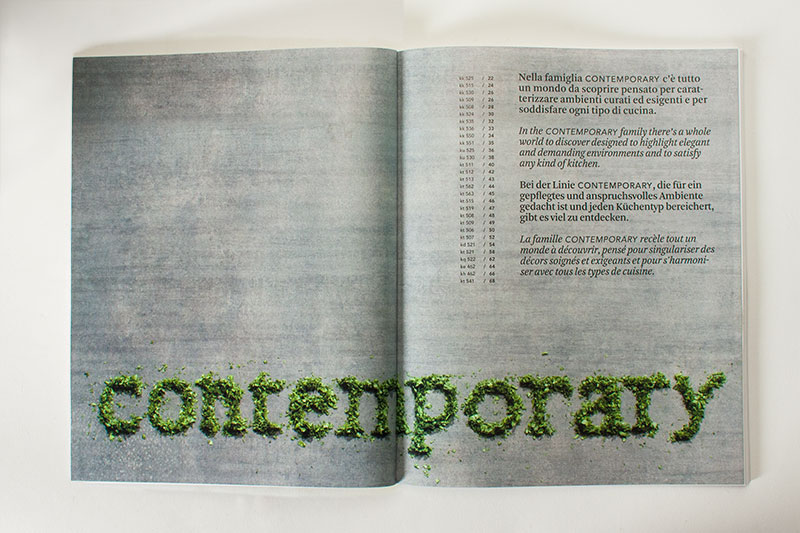 kt 512 / 42
kt 513 / 43
kt 562 / 44
kt 563 / 45
kt 515 / 46
kt 519 / 47
kt 508 / 48
kt 509 / 49
kt 506 / 50
kt 507 / 52
kd 521 / 54
kq 522 / 62
kh 462 / 66
kt 541 / 68
Nella famiglia CONTEMPORARY c'è tutto
un mondo da scoprire pensato per carat-
terizzare ambienti curati ed esigenti e per
soddisfare ogni tipo di cucina.
In the CONTEMPORARY family there's a whole
world to discover designed to highlight elegant
and demanding environments and to satisfy
any kind of kitchen.
Bei der Linie CONTEMPORARY, die für ein
gepflegtes und anspruchsvolles Ambiente
gedacht ist und jeden Küchentyp bereichert,
gibt es viel zu entdecken.
La famille CONTEMPORARY recèle tout un
monde à découvrir, pensé pour singulariser des
décors soignés et exigeants et pour s'harmoni-
ser avec tous les types de cuisine.
contemporary